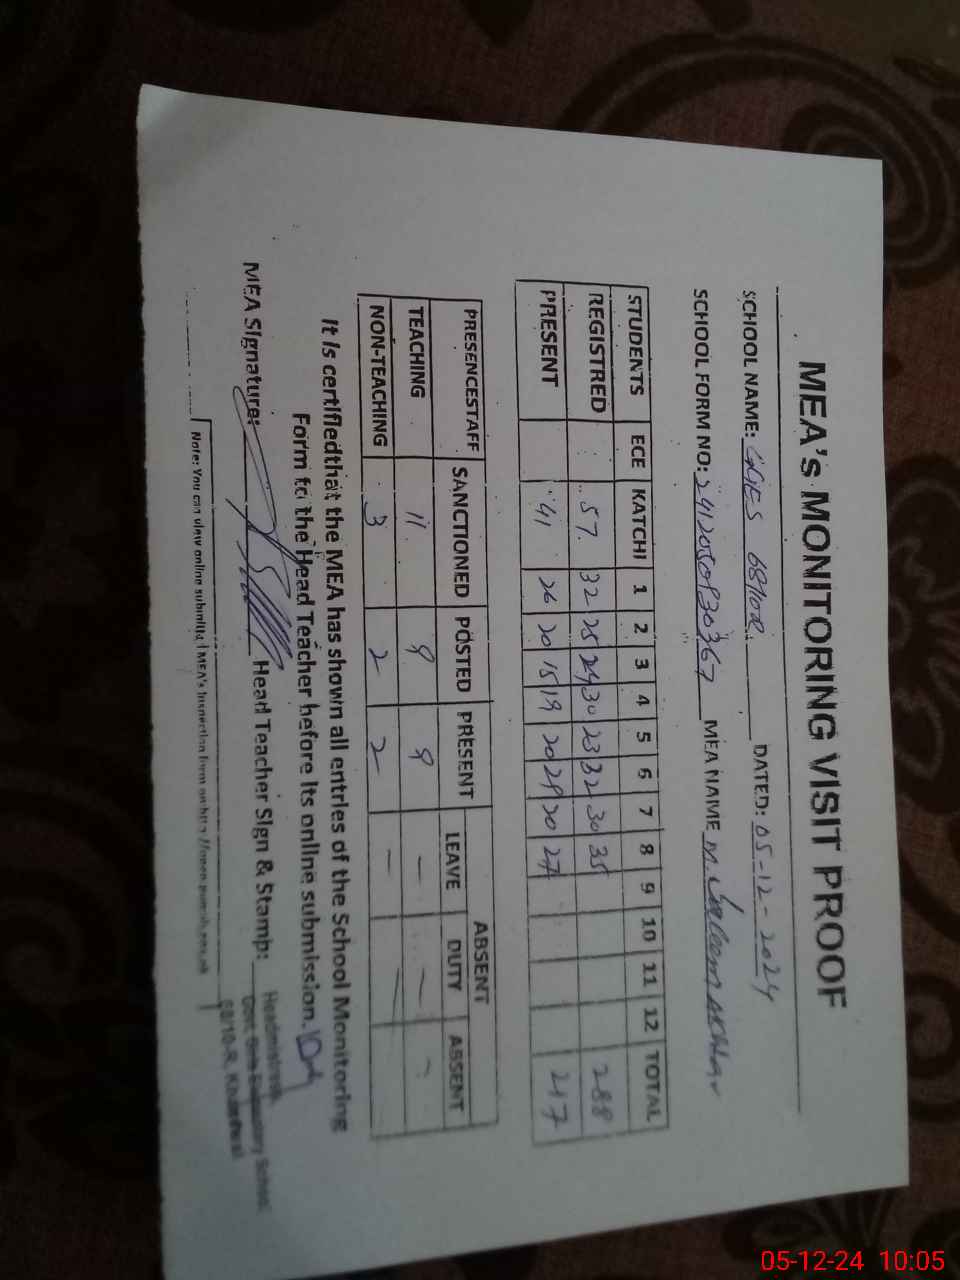 MEA's MONITORING VISIT PROOF
SCHOOL NAME: GGES 68/10R DATED: 05-12-2024
SCHOOL FORM NO: 2412050830367 MEA NAME M. Saleem Akhtar
STUDENTS ECE KATCHI 1 2 3 4 5 6 7 8 9 10 11 12 TOTAL
REGISTRED 57 32 25 24 30 23 32 30 35 288
PRESENT 41 26 20 15 19 20 29 20 27 217
PRESENCESTAFF SANCTIONED POSTED PRESENT ABSENT
LEAVE DUTY ABSENT
TEACHING 11 9 9 — — —
NON-TEACHING 3 2 2 — —
It is certifiedthat the MEA has shown all entries of the School Monitoring
Form to the Head Teacher before its online submission.
MEA Signature: Head Teacher Sign & Stamp:
Headmistress
Govt. Girls Elementary School
68/10-R, Khanewal
Note: You can view online submitted MEA's Inspection form on http://open.punjab.gov.pk
05-12-24 10:05